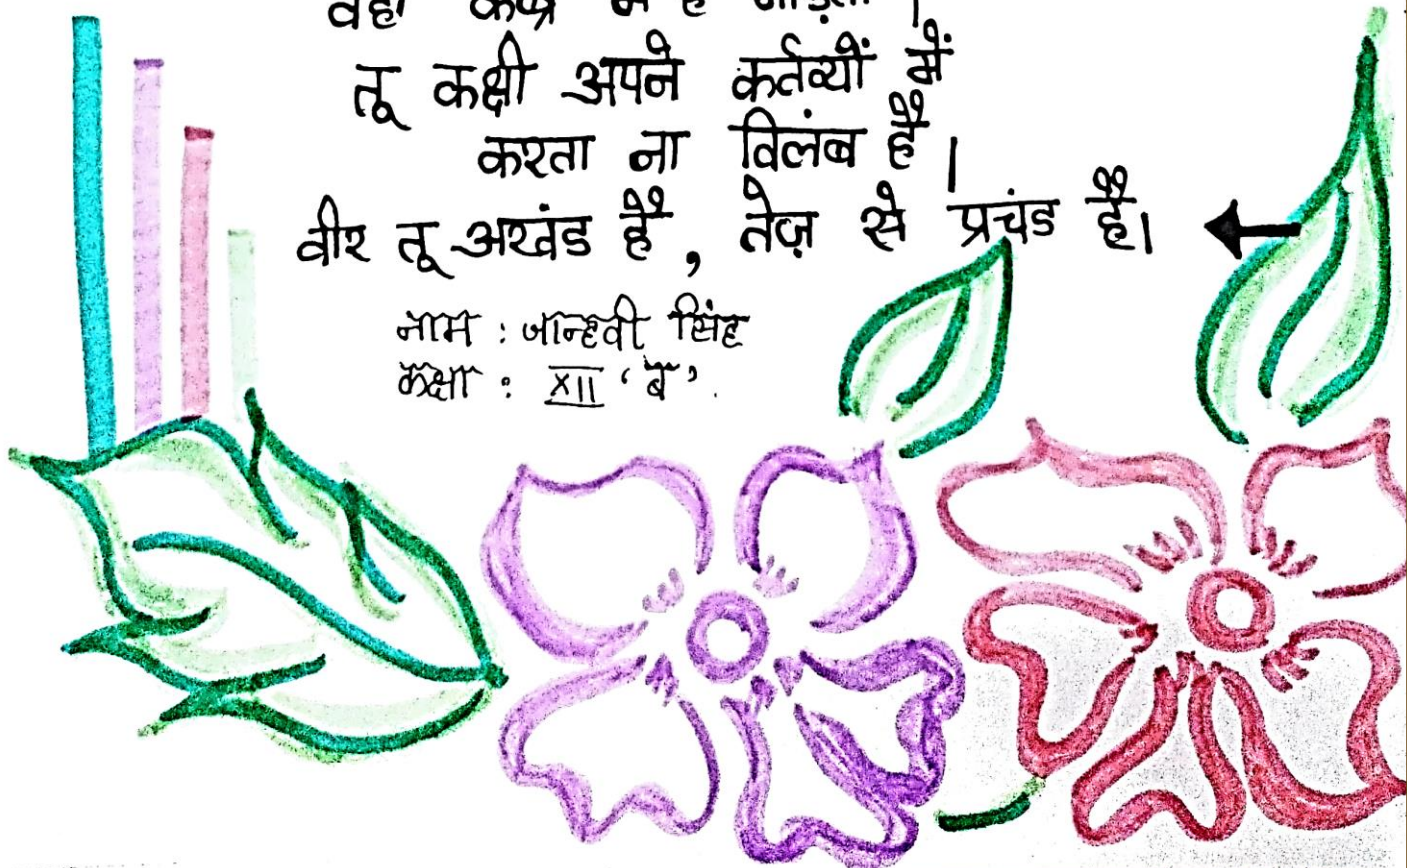 वहीं कब्र में है गाड़ता।
तू कभी अपने कर्तव्यों में
करता ना विलंब है।
वीर तू अखंड है, तेज़ से प्रचंड है।
नाम : जान्हवी सिंह
कक्षा : XII 'ब'.